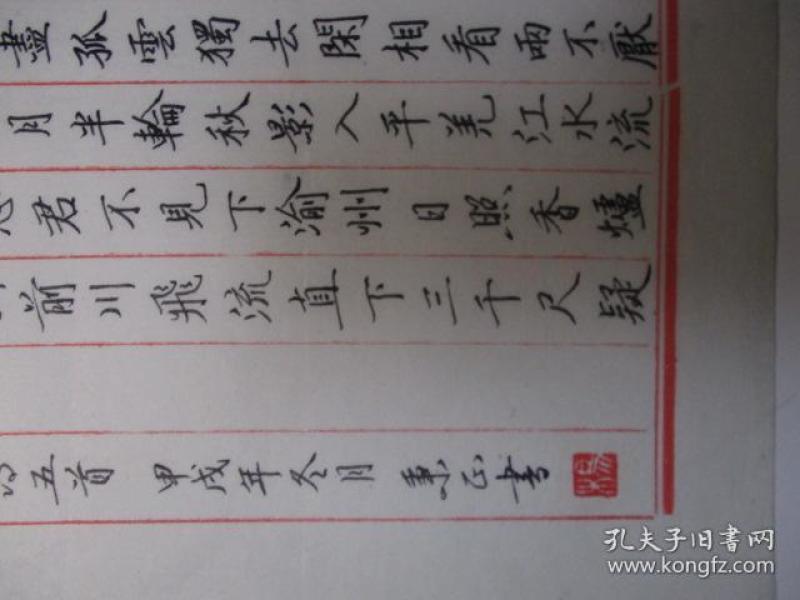 盡孤雲獨去閑相看兩不厭
月半輪秋影入平羌江水流
君不見下渝州日照香爐
前川飛流直下三千尺疑
五首 甲戌年冬月 秉正書
孔夫子旧書网
www.kongfz.com